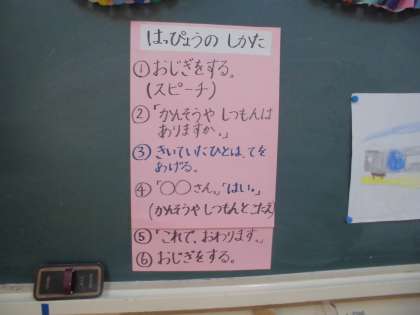 はっぴょうの しかた
①おじぎをする。
(スピーチ)
②「かんそうや しつもんは
ありますか。」
③きいていたひとは、てを
あげる。
④「○○さん。」「はい。」
(かんそうや しつもんと こたえ)
⑤「これで、おわります。」
⑥おじぎをする。